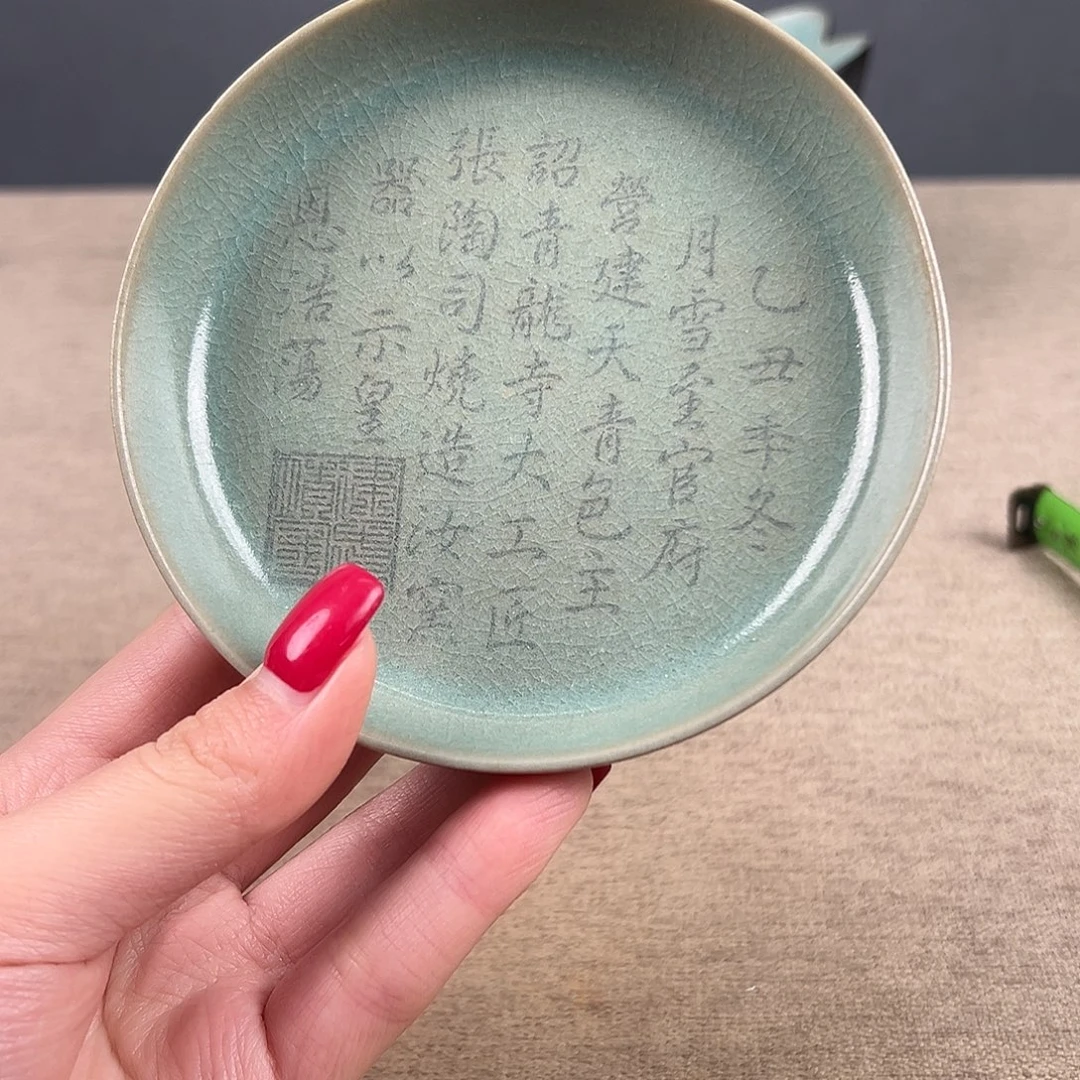 乙丑年冬
月雪重官府
營建天青色主
詔青龍寺大工匠
張陶司燒造汝窯
器以示皇
恩浩蕩